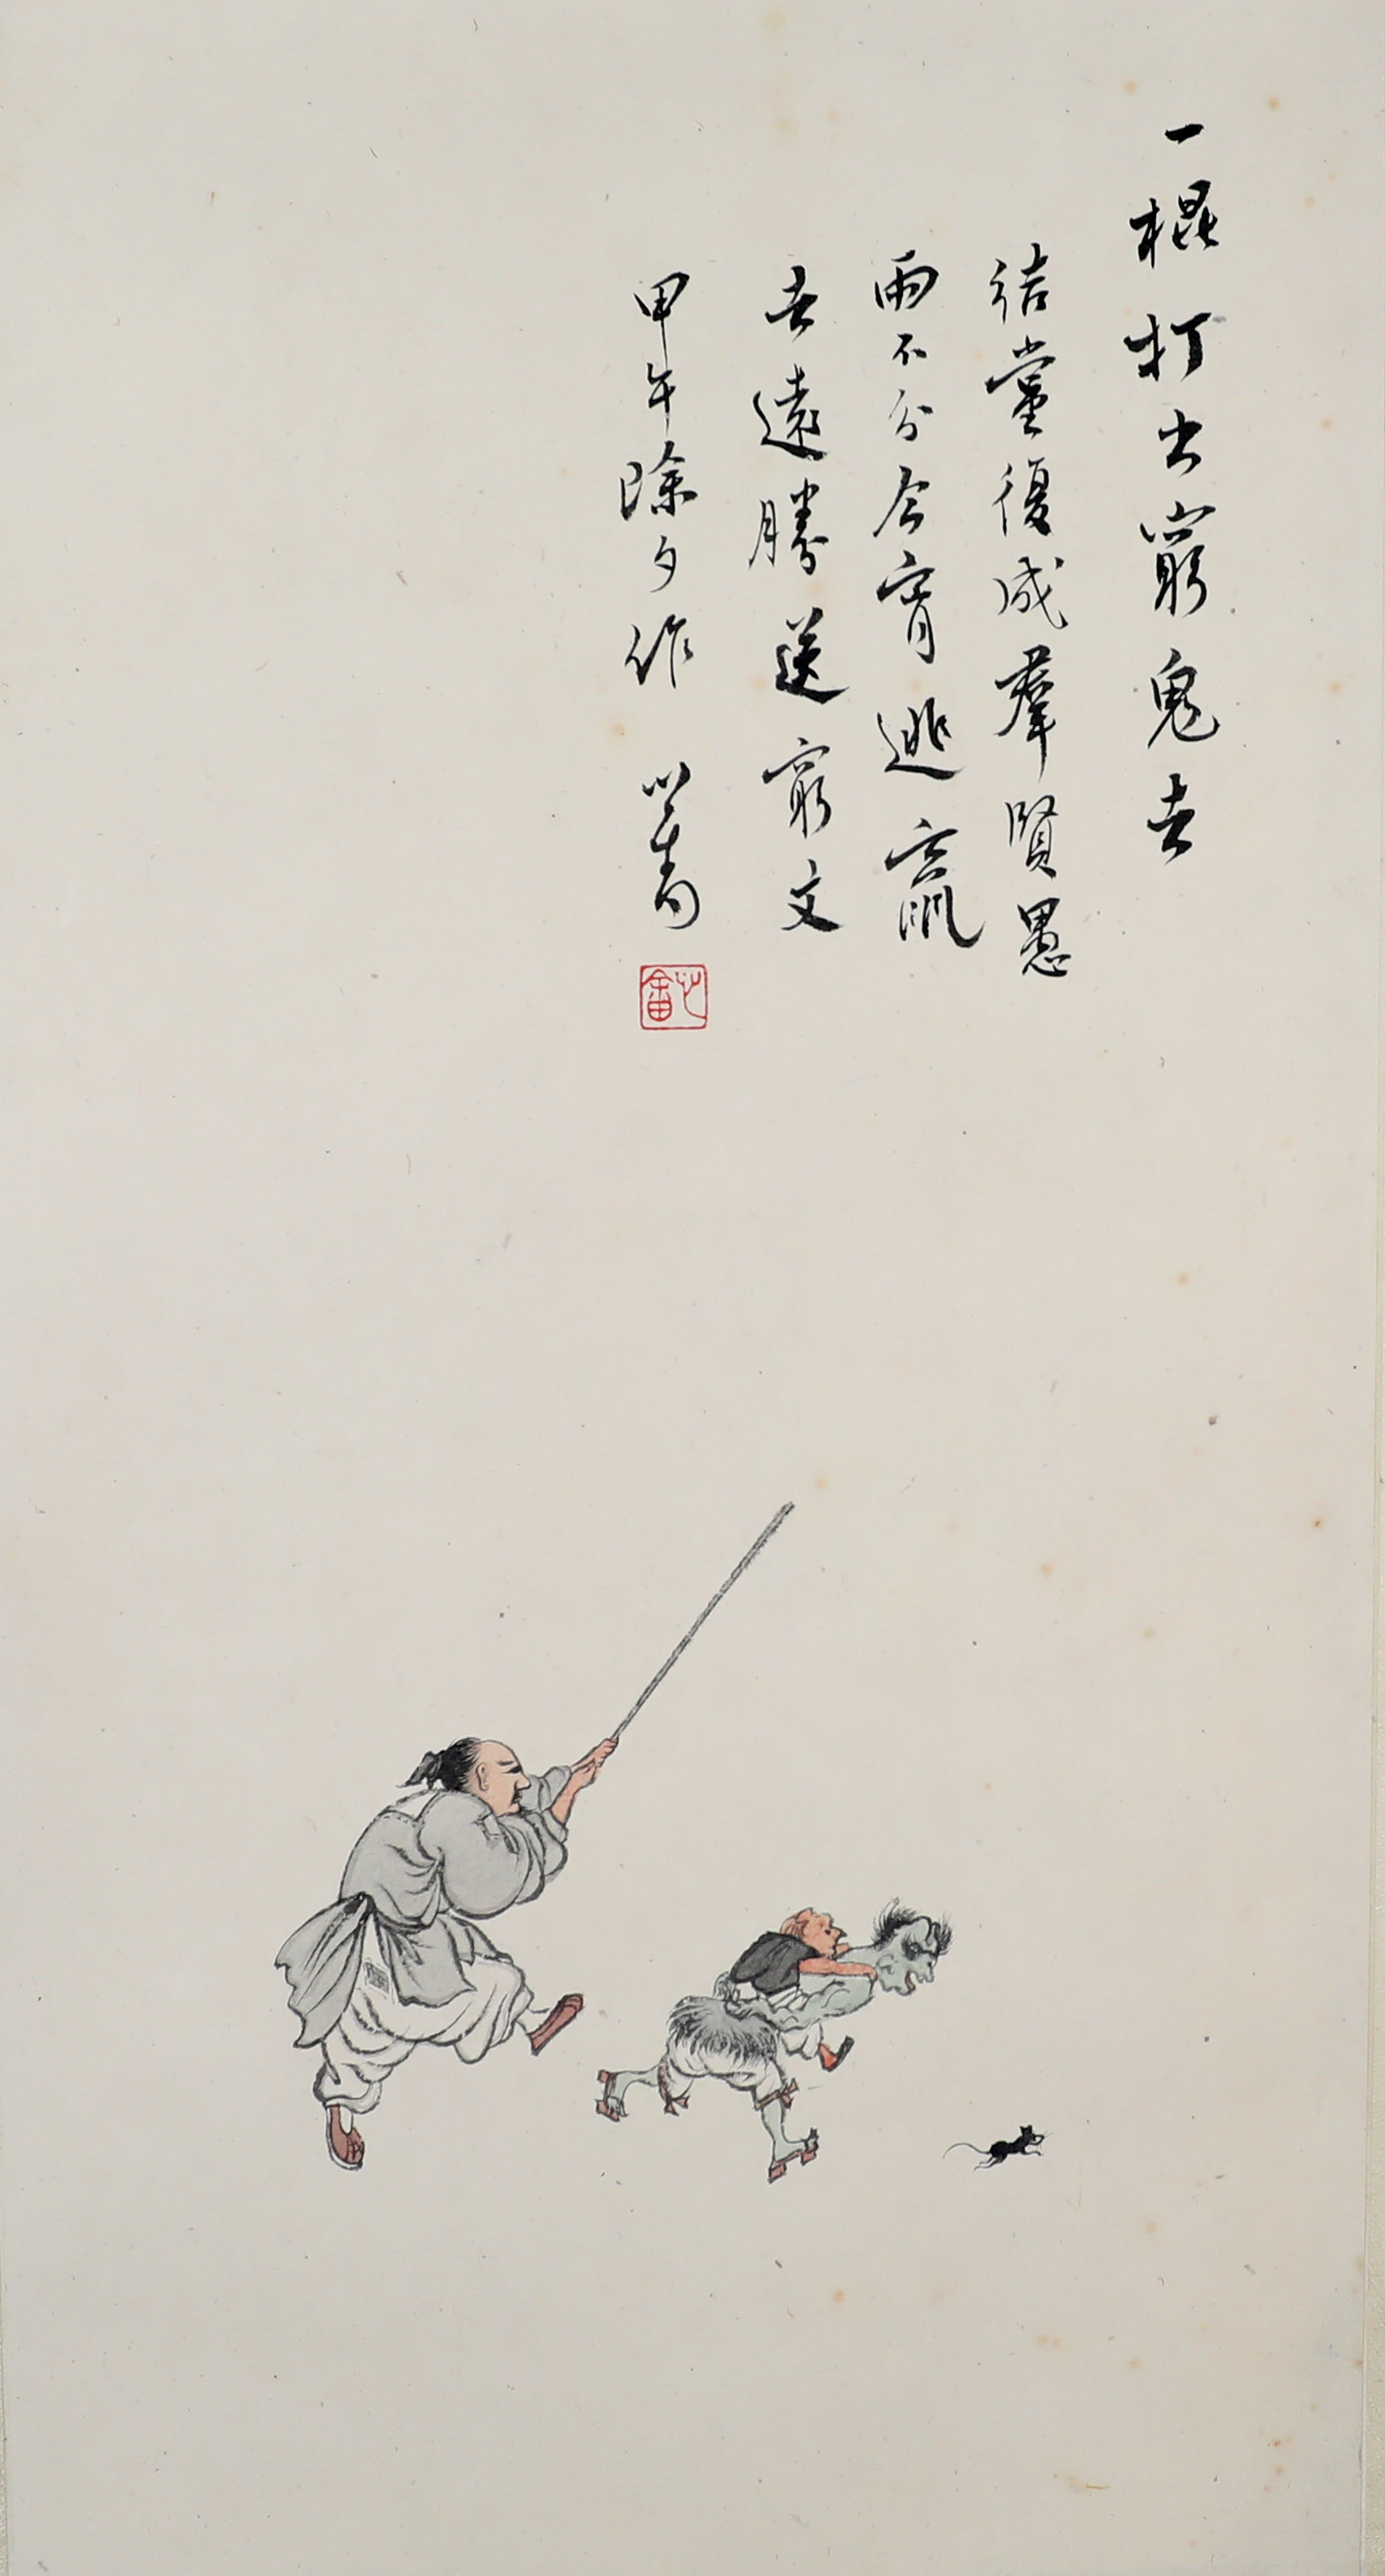 一棍打出窮鬼去
結黨復成羣賢愚
兩不分今宵逃
去遠勝送窮文
甲午除夕作 心畬
心畬